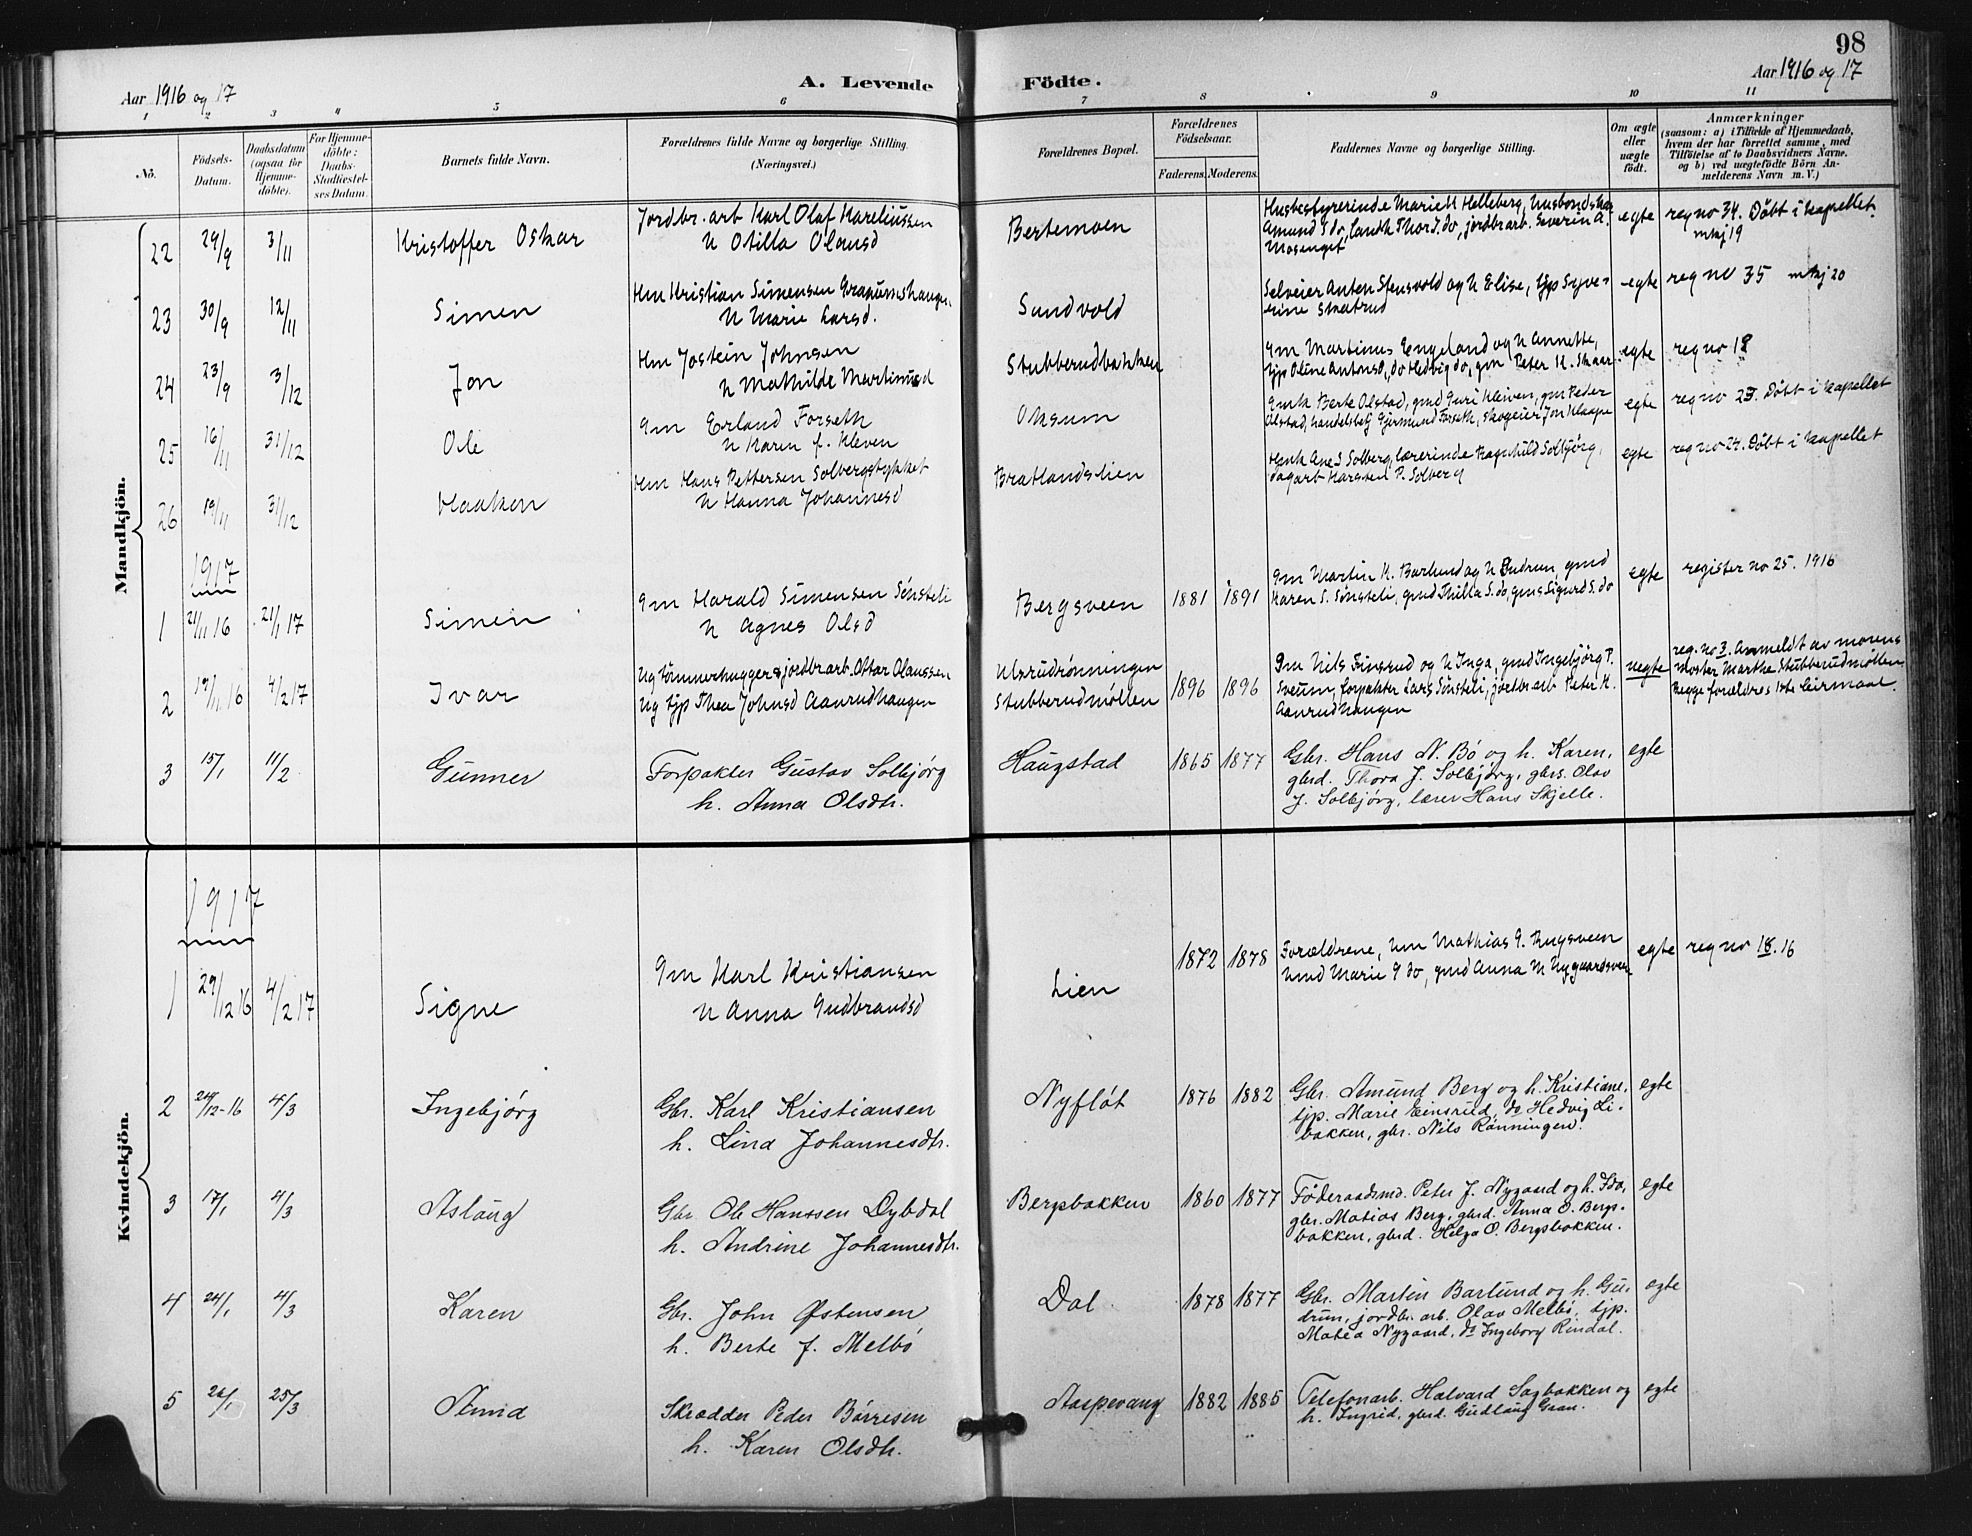 98
Aar 1916 og 17
A. Levende Födte.
Aar 1916 og 17
1 2 3 4 5 6 7 8 9 10 11
No.
Födsels-Datum.
Daabsdatum (ogsaa for Hjemmedöbte).
For Hjemmedöbte: Daabs-Stadfæstelses Datum.
Barnets fulde Navn.
Forældrenes fulde Navne og borgerlige Stilling. (Næringsvei.)
Forældrenes Bopæl.
Forældrenes Födselsaar.
Faderens. Moderens.
Faddernes Navne og borgerlige Stilling.
Om ægte eller uægte födt.
Anmærkninger
(saasom: a) i Tilfælde af Hjemmedaab,
hvem der har forrettet samme, med
Tilföielse af to Daabsvidners Navne.
og b) ved uægtefödte Börn An-
melderens Navn m. V.)
Mandkjön.
22 29/9 3/11 Kristoffer Oskar
Jordbr. arb Karl Olaf Kareliussen
h Otilla Olausd
Bertemoen
Husbestyrerinde Marie H Helleberg, husbondskar
Amund S do, landh Thor S. do, jordbrarb. Severin A.
Mosenget
egte
reg no 34. Döbt i kapellet.
mkj 19
23 30/9 12/11 Simen
Hm Kristian Simensen Graupeshaugen
h Marie Larsd.
Sundvold
Selveier Anton Stensvold og h Elise, tjp Syve-
rine Skatrud
egte
reg no 35 mkj 20
24 23/9 3/12 Jon
Hm Jostein Johnsen
h Mathilde Martinusd
Stubberudbakken
gm Martinus Engeland og h Annette,
tjp Oline Antonsd, do Hedvig do, gm Peter K. Skaar
egte
reg no 18
25 16/11 31/12 Ole
gm Erland Forseth
h Karen f. Kleven
Oksum
gmk Berte Olstad, gmd Guri Kleiven, gm Peder
Olstad, handelsbetj Gjermund Forseth, skogeier Jon Klaape
egte
reg no 23. Döbt i kapellet
26 19/11 31/12 Haakon
Hm Hans Pettersen Solbergstykket
h Hanna Johannesd
Bratlandslien
Hmk Ane S Solberg, lærerinde Ragnhild Solbjörg,
dagarb Karsten P. Solberg
egte
reg no 24. Döbt i kapellet
1917
1 21/11 16 21/1 17 Simen
gm Harald Simensen Sönsteli
h Agnes Olsd
Bergsveen 1881 1891
gm Martin K. Barlund og h Gudrun, gmd
Karen S. Sönsteli, gmd Thilla S. do, gms Sigurd S. do
egte
register no 25. 1916
2 19/11 16 4/2 17 Ivar
Ug tömmerhugger & jordbrarb. Ottar Olaussen
Ug tjp Thea Johnsd Aanrudhaugen
Ulsrudrönningen
Stubberudmöllen
1896 1896
gm Nils Einsrud og h Inga, gmd Ingebjörg P.
Sveum, forpakter Lars Sönsteli, jordbr arb Peter K.
Aanrudhaugen
uegte
reg. no 3. Anmeldt av morens
moster Marthe Stubberudmöllen
Begge forældres 1ste leirmaal.
3 15/1 11/2 Gunner
Forpakter Gustav Solbjörg
h. Anna Olsdtr.
Haugstad 1865 1877
Gbr. Hans N. Bö og h. Karen,
gbrd. Thora J. Solbjörg, gbrs. Olav
J. Solbjörg, lærer Hans Skjelle.
egte
Kvindekjön.
1917
1 29/12 16 4/2 17 Signe
gm Karl Kristiansen
h Anna Gudbrandsd
Lien 1872 1878
Forældrene, hm Mathias G. Bugsveen
hmd Marie G do, gmd Anna M Nygaardsveen
egte
reg no 18. 16
2 24/12-16 4/3 Ingebjörg
Gbr. Karl Kristiansen
h. Lina Johannesdtr.
Nyflöt 1876 1882
Gbr. Amund Berg og h. Kristiane,
tjp. Marie Einsrud, do Hedvig Li-
bakken, gbr. Nils Rönningen.
egte
3 17/1 4/3 Aslaug
Gbr. Ole Hanssen Dybdal
h. Andrine Johannesdtr.
Bergsbakken 1860 1877
Föderaadsmd. Peter J. Nygaard og h. Ida,
gbr. Matias Berg, gbrd. Anna O. Bergs-
bakken, gbrd. Helga O. Bergsbakken.
egte
4 24/1 4/3 Karen
Gbr. John Østensen
h. Berte f. Melbö
Dal 1878 1877
Gbr. Martin Barlund og h. Gu-
drun, jordbr. arb. Olav Melbö, tjp.
Matea Nygaard, do Ingeborg Rindal.
egte
5 26/1 25/3 Anna
Skrædder Peder Börresen
h. Karen Olsdtr.
Aaspevang 1882 1885
Telefonarb. Halvard Sagbakken og
h. Ingrid, gbrd. Gudlaug Gran.
egte